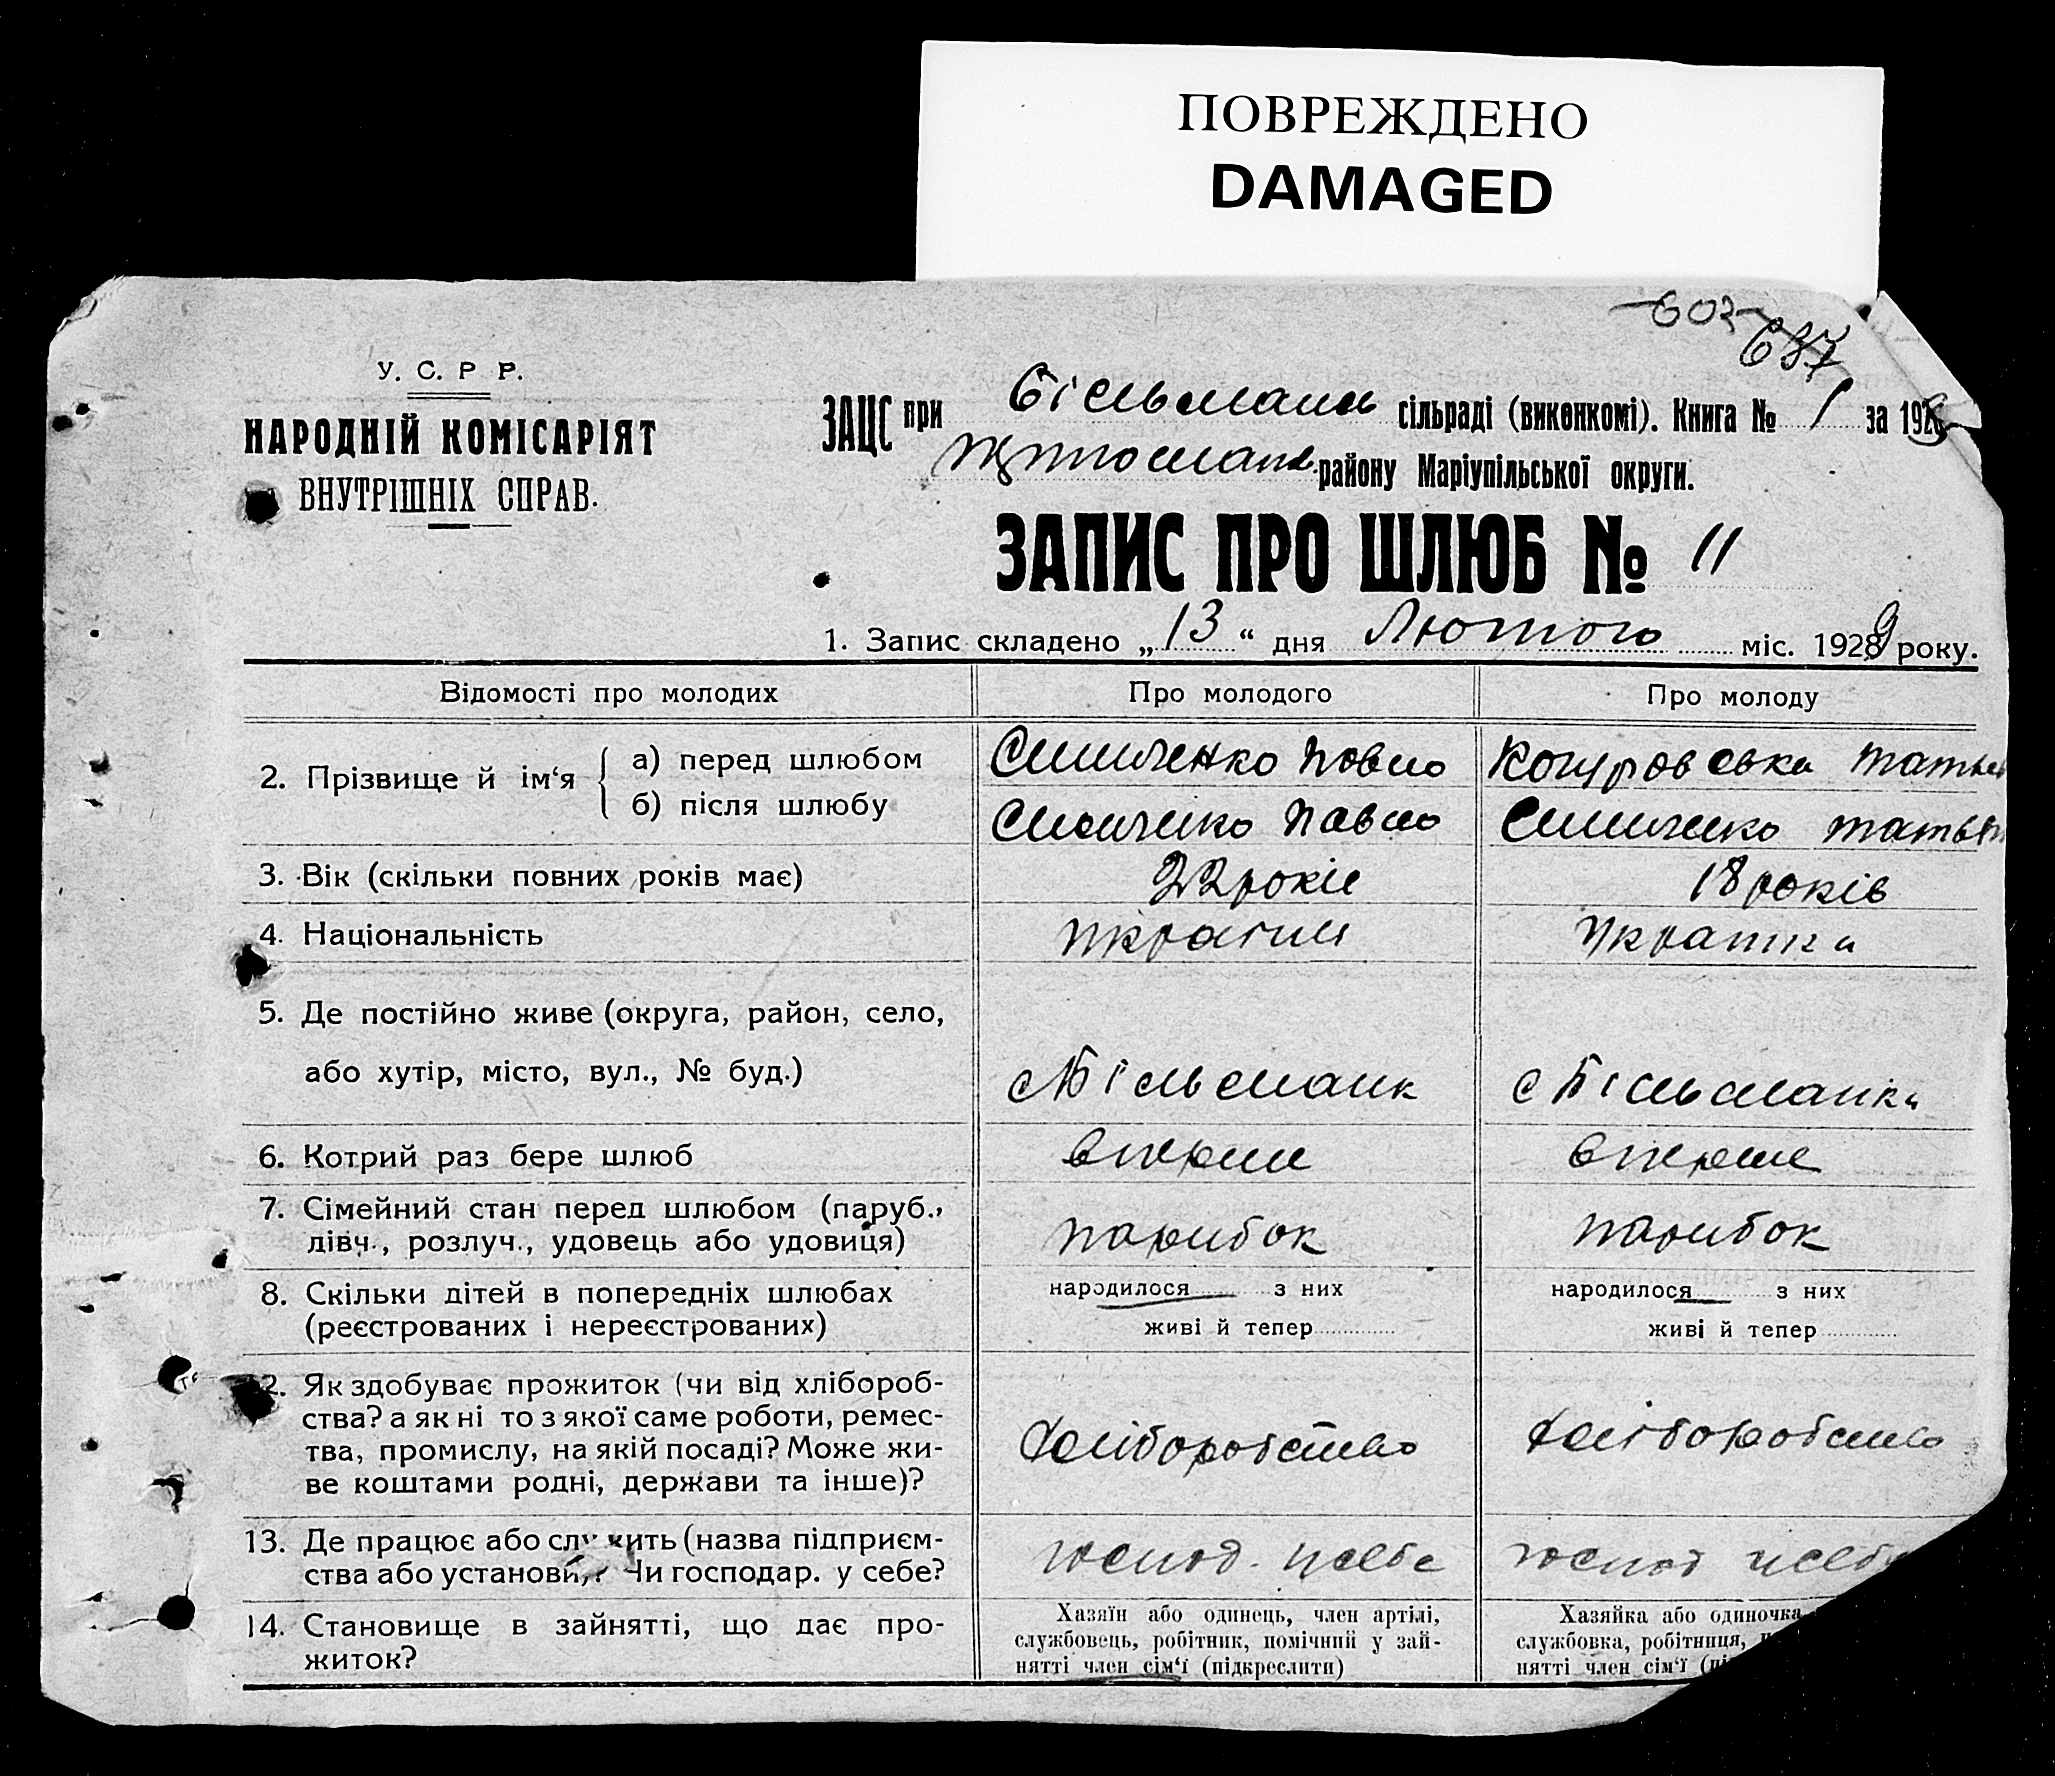 ПОВРЕЖДЕНО
DAMAGED
603
637
У. С. Р Р.
НАРОДНІЙ КОМІСАРІЯТ
ВНУТРІШНІХ СПРАВ.
ЗАЦС при Більманк сільраді (виконкомі). Книга № 1 за 192
району Маріупільської округи.
ЗАПИС ПРО ШЛЮБ № 11
1. Запис складено „ 13 “ дня Лютого міс. 1929 року.
Відомості про молодих Про молодого Про молоду
2. Прізвище й ім‘я { а) перед шлюбом Симченко Павло
б) після шлюбу Симченко Павло Симченко
3. Вік (скільки повних років має) 22 років 18 років
4. Національність
5. Де постійно живе (округа, район, село,
або хутір, місто, вул., № буд.) с Більманк с Більманка
6. Котрий раз бере шлюб вперше вперше
7. Сімейний стан перед шлюбом (паруб.,
дівч., розлуч., удовець або удовиця) парубок парубок
8. Скільки дітей в попередніх шлюбах народилося з них народилося з них
(реєстрованих і нереєстрованих) живі й тепер живі й тепер
2. Як здобуває прожиток (чи від хлібороб-
ства? а як ні то з якої саме роботи, ремес-
тва, промислу, на якій посаді? Може жи- хліборобство хліборобство
ве коштами родні, держави та інше)?
13. Де працює або служить (назва підприєм-
ства або установи)? Чи господар. у себе? господ. у себе господ у себе
14. Становище в зайнятті, що дає про-
житок?
Хазяїн або одинець, член артілі,
службовець, робітник, помічний у зай-
нятті член сім‘ї (підкреслити)
Хазяйка або одиночка
службовка, робітниця,
нятті член сім‘ї